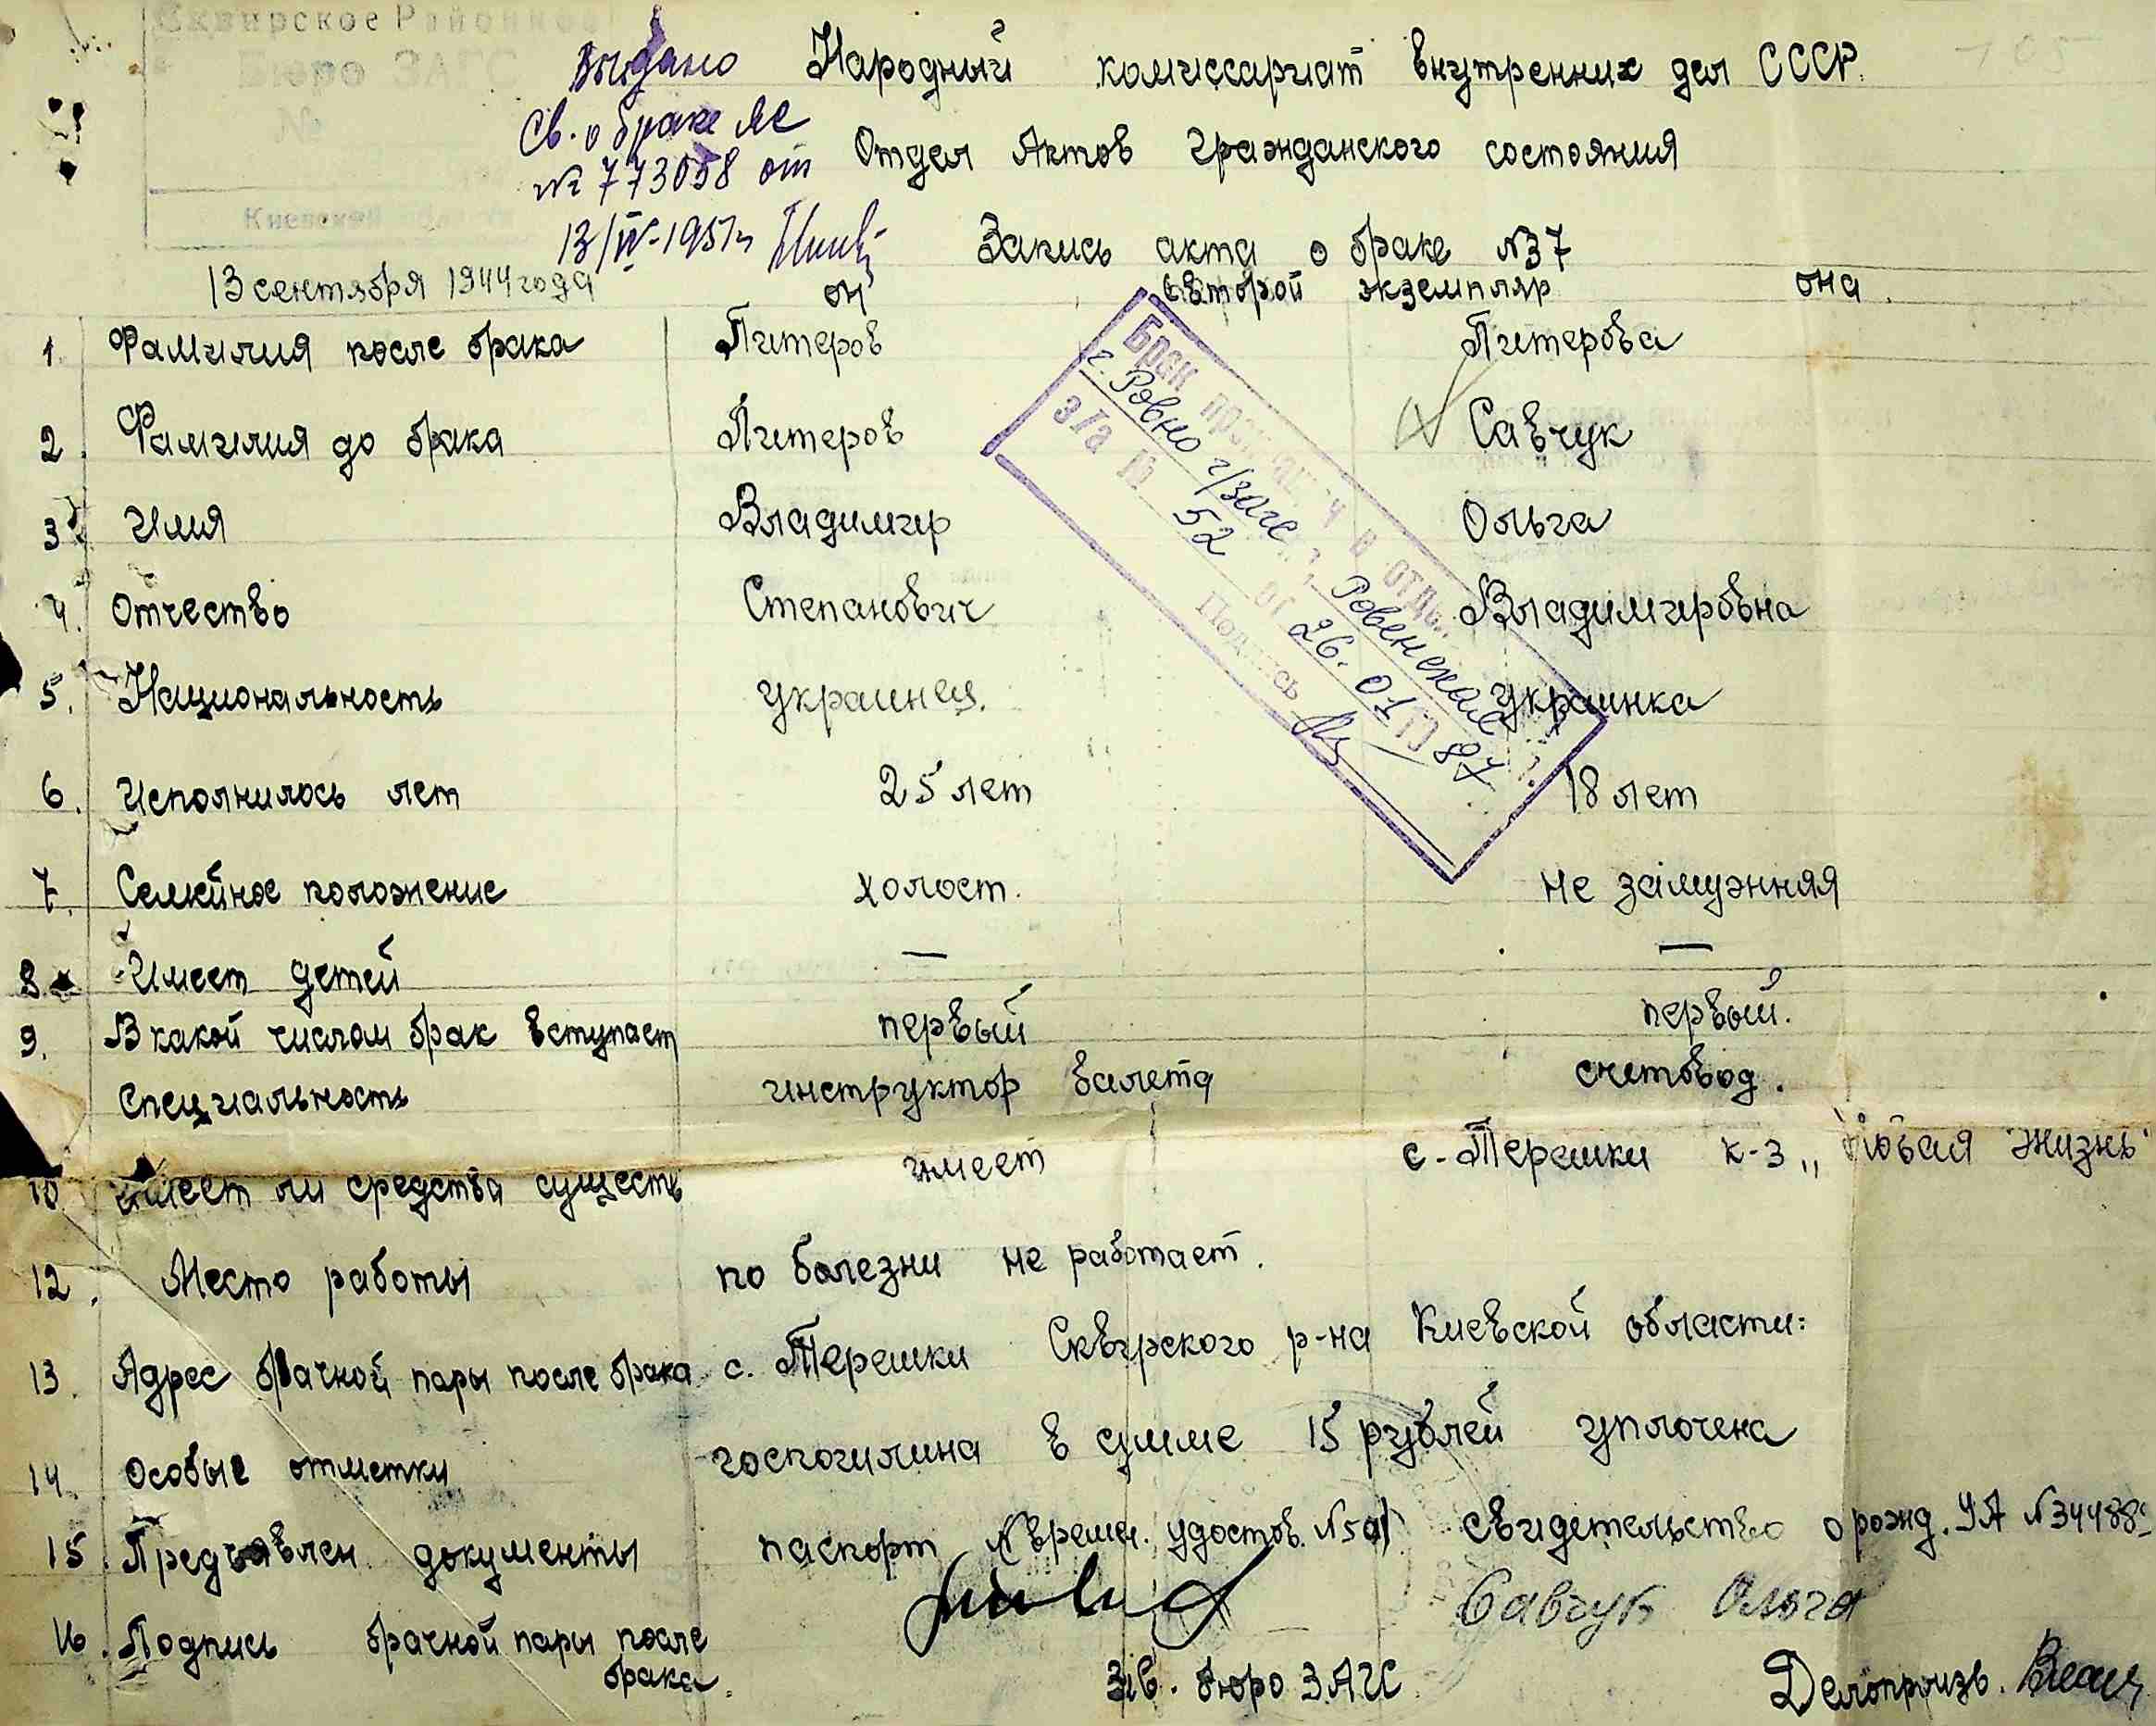 Сквирское Районное
Бюро ЗАГС
№
Киевской области
Выдано
Св. о браке
№ 773058 от
13/IV-1951г
Народный комиссариат внутренних дел СССР.
Отдел Актов Гражданского состояния
Запись акта о браке №37
13 сентября 1944 года он второй экземпляр она
1. Фамилия после брака Питеров Питерова
2. Фамилия до брака Питеров Савчук
3. Имя Владимир Ольга
4. Отчество Степанович Владимировна
5. Национальность украинец. украинка
6. Исполнилось лет 25 лет 18 лет
7. Семейное положение холост. не замужняя
8. Имеет детей — —
9. В какой числом брак вступает первый первый.
Специальность инструктор балета счетовод.
10 Имеет ли средства существ имеет с. Терешки к-з „Новая жизнь"
12. Место работы по болезни не работает.
13. Адрес брачной пары после брака с. Терешки Сквирского р-на Киевской области:
14. Особые отметки госпошлина в сумме 15 рублей уплочена
15. Предъявлен документы паспорт времен. удостов. свидетельство о рожд. УА
16. Подпись брачной пары после
брака.
Савчук Ольга
Зав. бюро ЗАГС
Делопроизв.
Брак в отд.
г. Ровно г/загс Ровенской
з/а № 52 от 26.01 19 87
Подпись